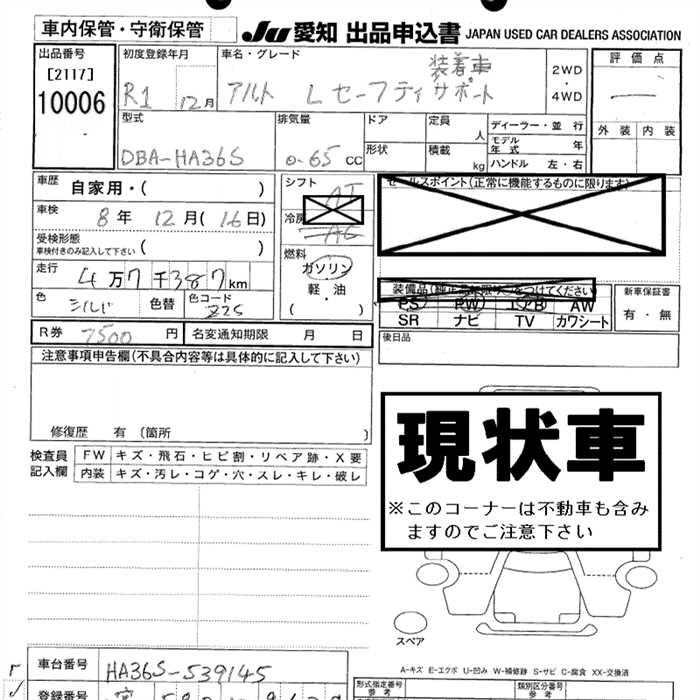 車内保管・守衛保管
JU 愛知 出品申込書 JAPAN USED CAR DEALERS ASSOCIATION
出品番号
[2117]
10006
初度登録年月
R1 12月
車名・グレード
アルト L セーフティサポート
装着車
2WD
・
4WD
評価点
外装 内装
型式
DBA-HA36S
排気量
0.65 CC
ドア
形状
定員 人
積載 kg
ディーラー・並行
モデル年式 年
ハンドル 左・右
車歴 自家用・( )
車検 8年 12月(16日)
受検形態
車検付きのみ記入して下さい ( )
走行 4万7千387km
色 シルバ 色替 色コード Z2S
シフト
AT
冷房
AC
燃料
ガソリン
・
軽・油
( )
セールスポイント(正常に機能するものに限ります)
PS PW エアB AW
SR ナビ TV カワシート
新車保証書
有・無
R券 7500 円 名変通知期限 月 日
後日品
注意事項申告欄(不具合内容等は具体的に記入して下さい)
修復歴 有 〔箇所 〕
現状車
※このコーナーは不動車も含み
ますのでご注意下さい
検査員
記入欄
FW キズ・飛石・ヒビ割・リペア跡・X要
内装 キズ・汚レ・コゲ・穴・スレ・キレ・破レ
スペア
A-キズ E-エクボ U-凹み W-補修跡 S-サビ C-腐食 XX-交換済
車台番号 HA36S-539145
登録番号
形式指定番号
参考
類別区分番号
参考